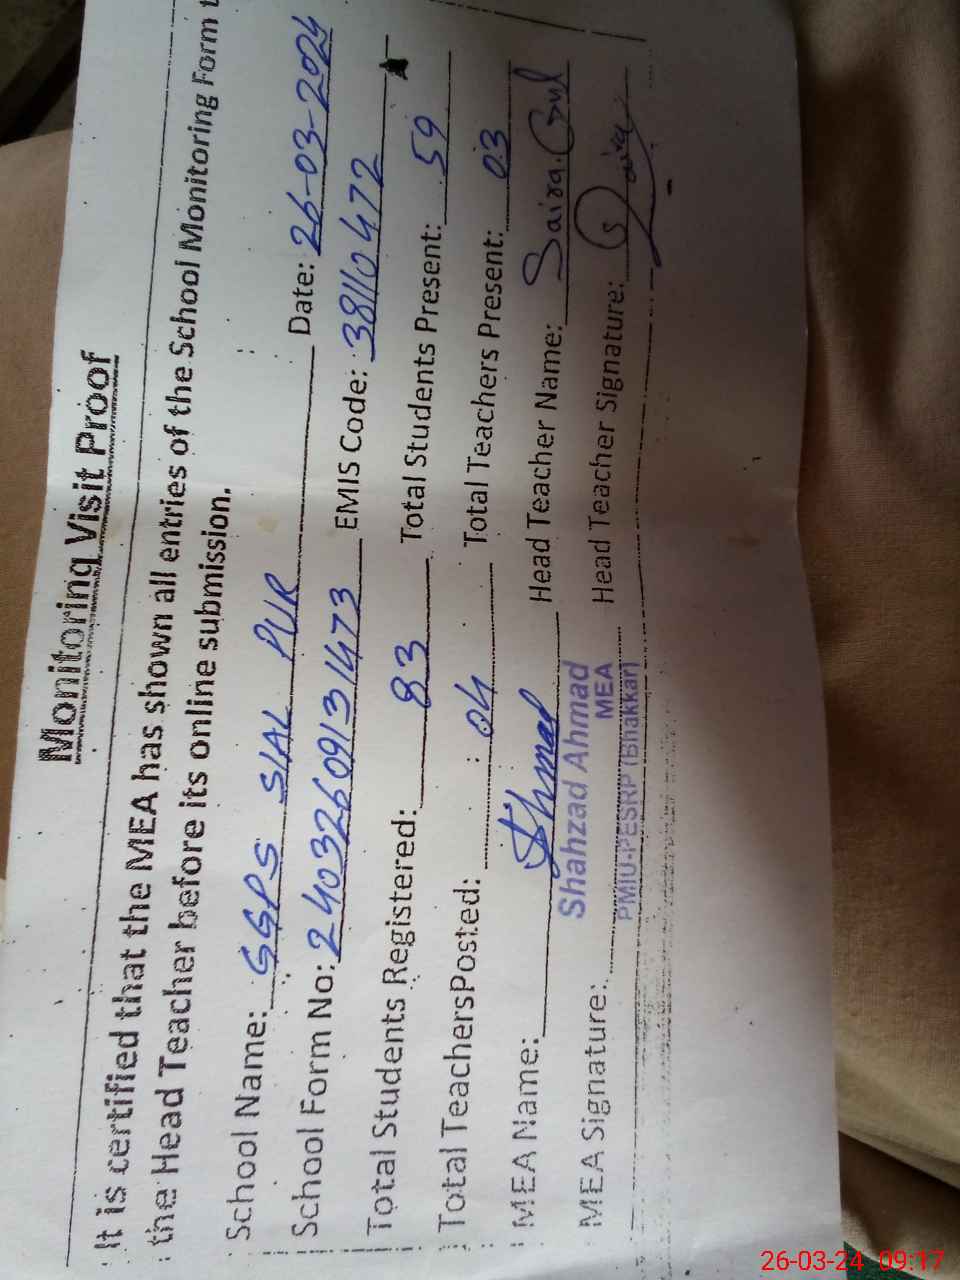 Monitoring Visit Proof
It is certified that the MEA has shown all entries of the School Monitoring Form t
the Head Teacher before its online submission.
School Name: GGPS SIAL PUR Date: 26-03-2024
School Form No: 24032609131473 EMIS Code: 38110472
Total Students Registered: 83 Total Students Present: 59
Total TeachersPosted: 04 Total Teachers Present: 03
MEA Name: Head Teacher Name: Saira Gul
Shahzad Ahmad
MEA Signature: MEA Head Teacher Signature: Saira
PMIU-PESRP (Bhakkar)
26-03-24 09:17